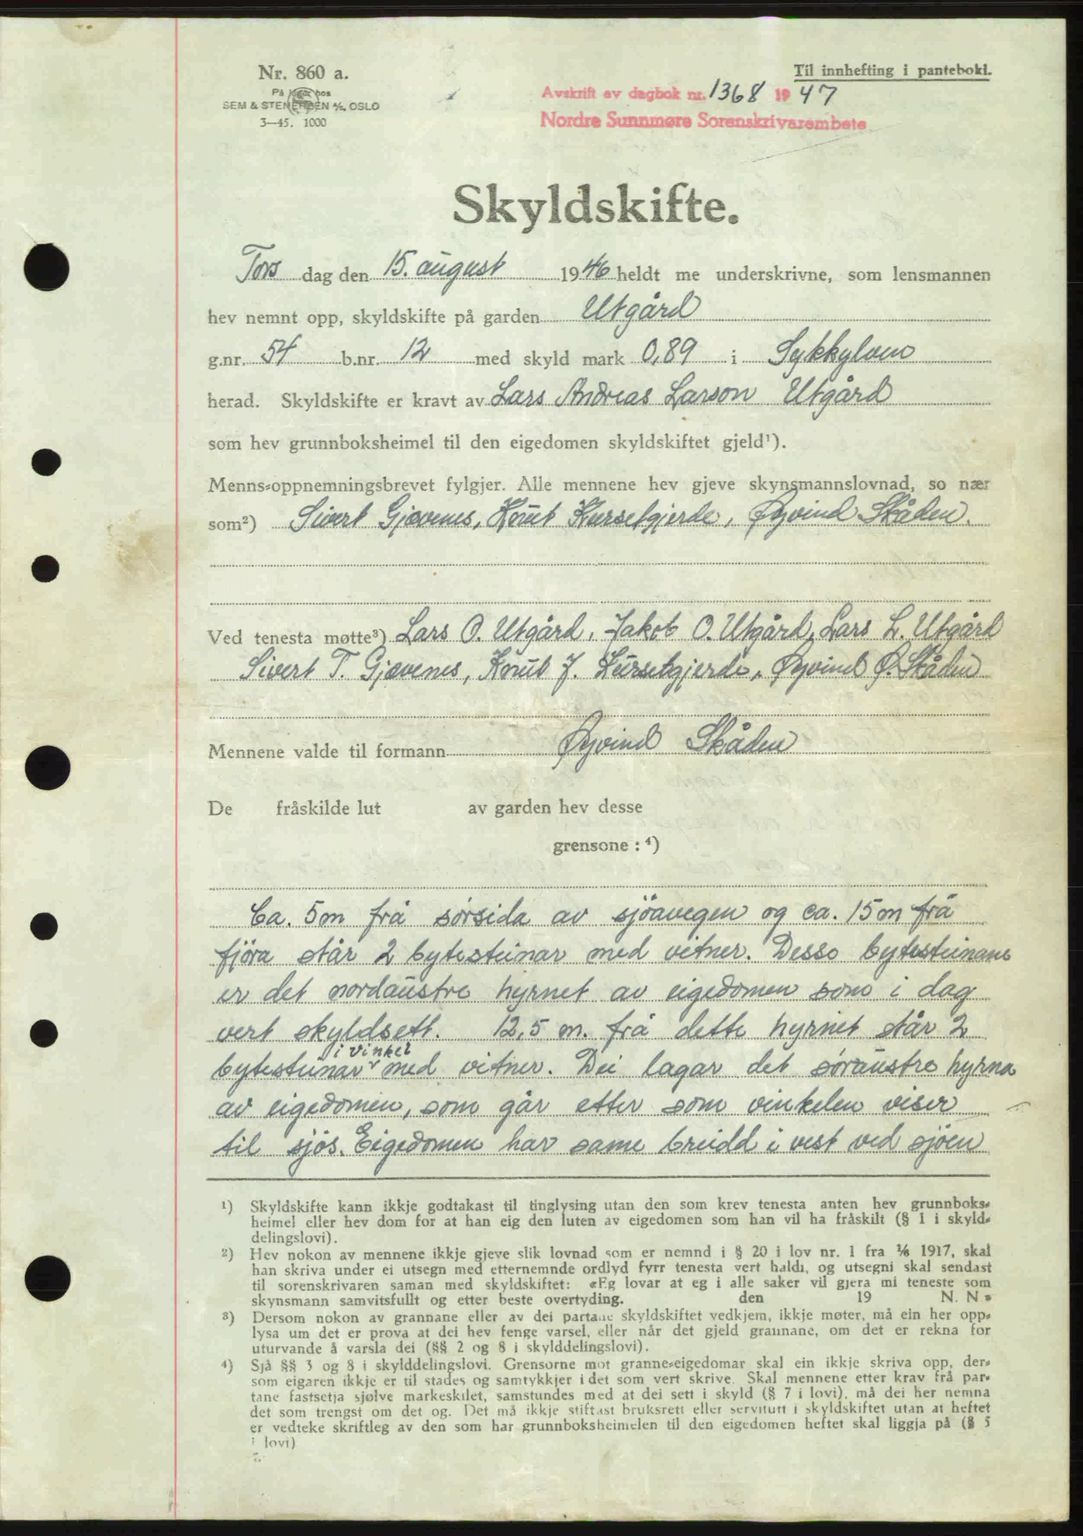 Nr. 860 a.
Til innhefting i pantebok.
På lager hos
SEM & STENERSEN A/S, OSLO
3—45. 1000
Avskrift av dagbok nr. 1368 1947
Nordre Sunnmøre Sorenskrivarembete
Skyldskifte.
Tors dag den 15. august 1946 heldt me underskrivne, som lensmannen
hev nemnt opp, skyldskifte på garden Utgård
g.nr. 54 b.nr. 12 med skyld mark 0,89 i Sykkylven
herad. Skyldskifte er kravt av Lars Andreas Larson Utgård
som hev grunnboksheimel til den eigedomen skyldskiftet gjeld¹).
Menns-oppnemningsbrevet fylgjer. Alle mennene hev gjeve skynsmannslovnad, so nær
som²) Sivert Gjævenes, Knut Kursetgjerde, Øyvind Skåden.
Ved tenesta møtte³) Lars O. Utgård, Jakob O. Utgård, Lars L. Utgård
Sivert T. Gjævenes, Knut J. Kursetgjerde, Øyvind Ø. Skåden
Mennene valde til formann Øyvind Skåden
De fråskilde lut av garden hev desse
grensone : ⁴)
Ca. 5m frå sørsida av sjøavegen og ca. 15m frå
fjøra står 2 bytesteinar med vitner. Desse bytesteinane
er det nordaustre hyrnet av eigedomen som i dag
vert skyldsett. 12,5 m. frå dette hyrnet står 2
i vinkel
bytesteinar med vitner. Dei lagar det søraustre hyrna
av eigedomen, som går etter som vinkelen viser
til sjøs. Eigedomen har same breidd i vest ved sjøen
¹) Skyldskifte kann ikkje godtakast til tinglysing utan den som krev tenesta anten hev grunnboks-
heimel eller hev dom for at han eig den luten av eigedomen som han vil ha fråskilt (§ 1 i skyld-
delingslovi).
²) Hev nokon av mennene ikkje gjeve slik lovnad som er nemnd i § 20 i lov nr. 1 fra 1/6 1917, skal
han skriva under ei utsegn med etternemnde ordlyd fyrr tenesta vert haldi, og utsegni skal sendast
til sorenskrivaren saman med skyldskiftet: «Eg lovar at eg i alle saker vil gjera mi teneste som
skynsmann samvitsfullt og etter beste overtyding. den 19 N. N.»
³) Dersom nokon av grannane eller av dei partane skyldskiftet vedkjem, ikkje møter, må ein her opp-
lysa um det er prova at dei hev fenge varsel, eller når det gjeld grannane, om det er rekna for
uturvande å varsla dei (§§ 2 og 8 i skylddelingslovi).
⁴) Sjå §§ 3 og 8 i skylddelingslovi. Grensorne mot granne-eigedomar skal ein ikkje skriva opp, der-
som eigaren ikkje er til stades og samtykkjer i det som vert skrive. Skal mennene etter krav frå par-
tane fastsetja sjølve markeskilet, samstundes med at dei sett i skyld (§ 7 i lovi), må dei her nemna
det som trengst om det og. Det må ikkje stiftast bruksrett eller servitutt i skyldskiftet utan at heftet
er vedteke skriftleg av den som har grunnboksheimelen til den eigedomen heftet skal liggja på (§ 5
i lovi)